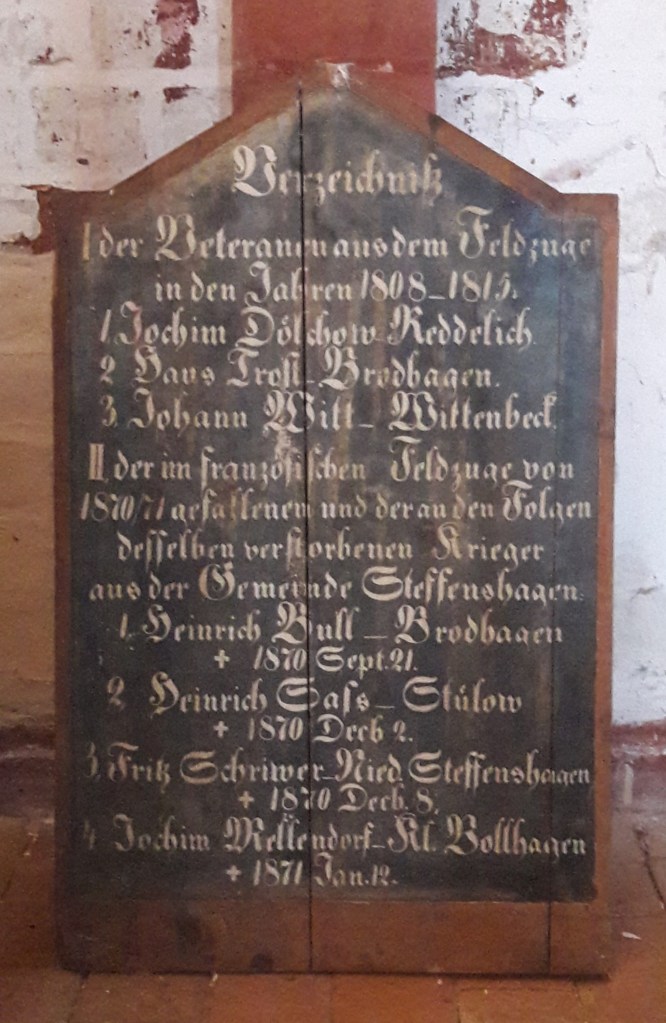 Verzeichniß
I der Veteranen aus dem Feldzuge
in den Jahren 1808–1815.
1, Jochim Dölchow–Reddelich.
2 Hans Trost–Brodhagen.
3, Johann Witt–Wittenbeck.
II, der im französischen Feldzuge von
1870/71 gefallenen und der an den Folgen
desselben verstorbenen Krieger
aus der Gemeinde Steffenshagen:
1, Heinrich Bull–Brodhagen
+ 1870 Sept. 21.
2 Heinrich Saſs–Stülow
+ 1870 Decb 2.
3, Fritz Schriwer–Nied. Steffenshagen
+ 1870 Decb. 8.
4 Jochim Mellendorf–Kl. Bollhagen
+ 1871 Jan. 12.